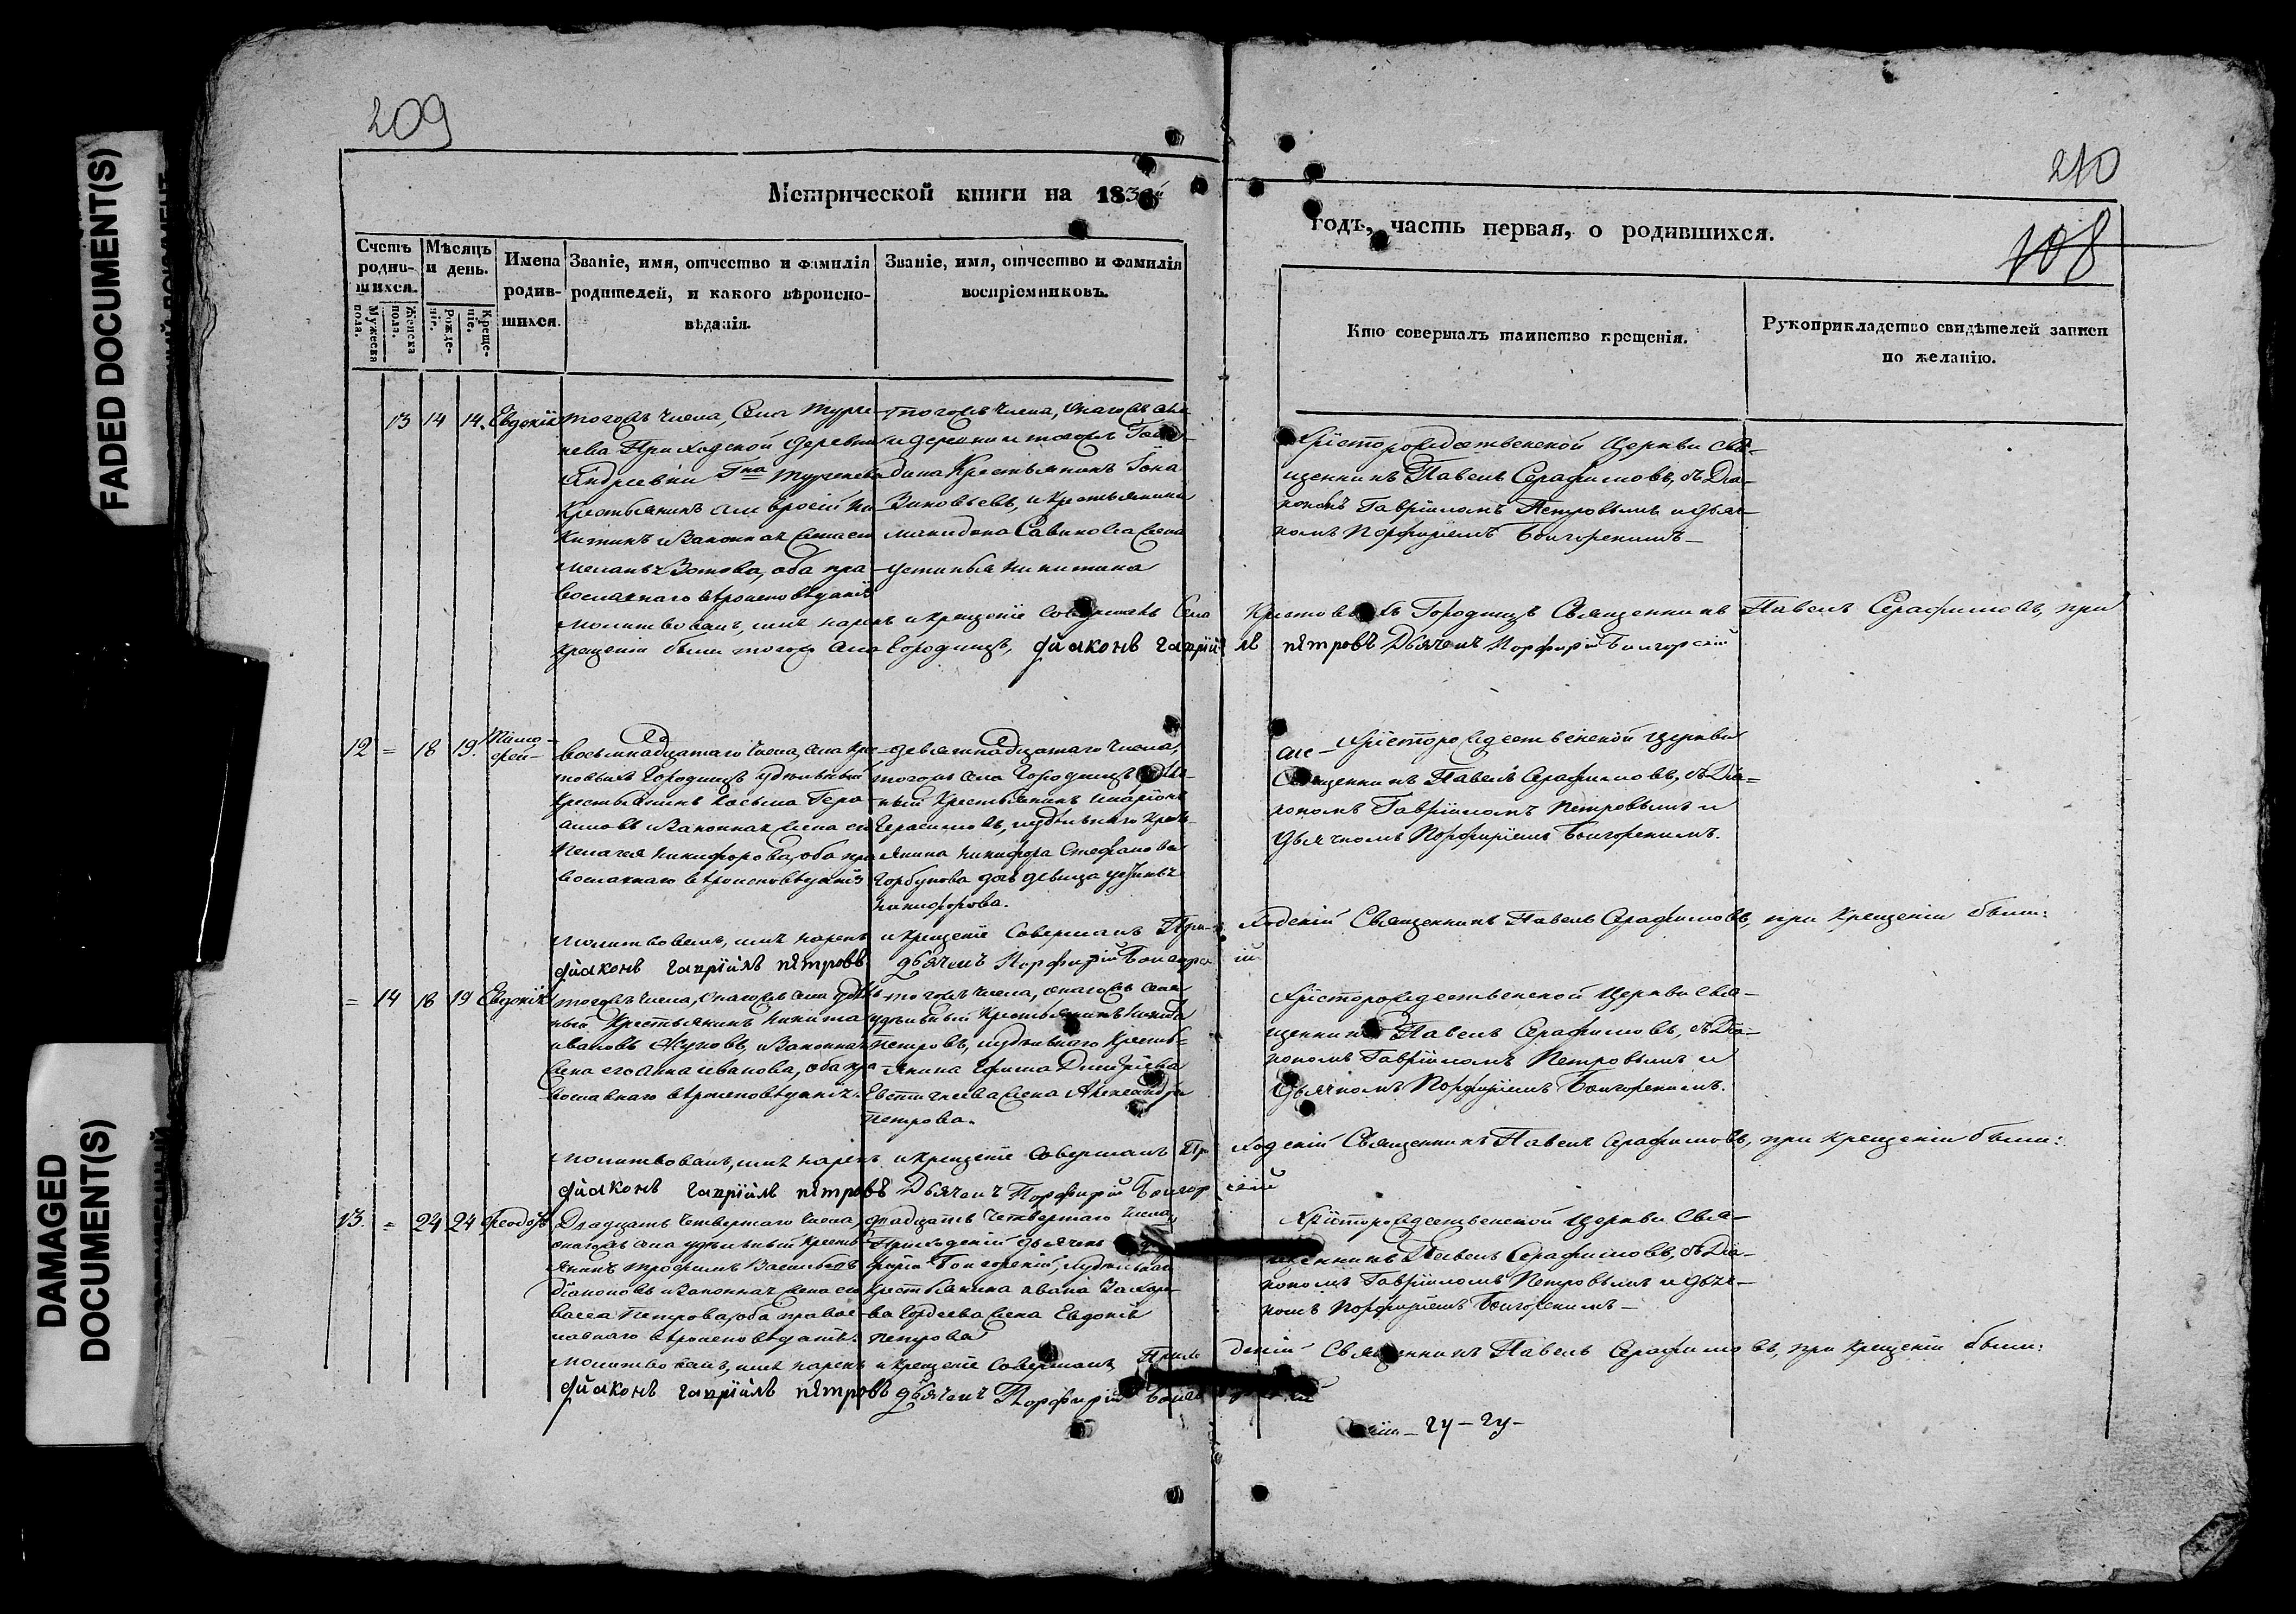 FADED DOCUMENT(S)
DAMAGED
DOCUMENT(S)
209
Метрической книги на 183
Счетъ родившихся.
Мужеска пола.
Женска пола.
Мѣсяцъ и день.
Рожденіе.
Крещеніе.
Имена родившихся.
Званіе, имя, отчество и фамилія
родителей, и какого вѣроиспо-
вѣданія.
Званіе, имя, отчество и фамилія
воспріемниковъ.
210
108
годъ, часть первая, о родившихся.
Кто совершалъ таинство крещенія.
Рукоприкладство свидѣтелей записи
по желанію.
13 14 14. Евдокія
тогожъ числа, села Турге-
нева Приходской деревни
Андреевки Гна Тургенева
Крестьянинъ Ни-
китинъ и законная жена ево
Зотова, оба пра-
вославнаго вѣроисповѣданія
тогожъ числа,
деревни и тогожъ Госпо-
дина Крестьянинъ Іона
Зиновьевъ, и крестьянина
Савинова жена
Устинья Никитина
Христорождественской Церкви Свя-
щенникъ Павелъ Серафимовъ, съ Діа-
кономъ Гавріиломъ Петровымъ и дьяч-
комъ Порфиріемъ
молитвовалъ, имя нарекъ и крещеніе совершалъ Села Городищъ Священникъ Павелъ Серафимовъ, при
крещеніи были тогожъ села Городищъ, діаконъ гавріилъ пѣтровъ Дьячекъ Порфирій
12 = 18 19. Тимо-
фей
Восьмнадцатаго числа, села
Городищъ удѣльный
Крестьянинъ Косьма Гера-
симовъ и законная жена ево
Пелагея Никифорова, оба пра-
вославнаго вѣроисповѣданія
девятнадцатаго числа,
тогожъ села Городищъ
Крестьянинъ Иларіонъ
Герасимовъ, и удѣльнаго Кресть-
янина Никифора Стефанова
Горбунова дочь девица
Никифорова.
Христорождественской Церкви
Священникъ Павелъ Серафимовъ, съ Діа-
кономъ Гавріиломъ Петровымъ и
дьячкомъ Порфиріемъ
молитвовалъ, имя нарекъ и крещеніе совершалъ Приходскій Священникъ Павелъ Серафимовъ, при крещеніи были:
діаконъ гавріилъ пѣтровъ дьячекъ Порфирій
= 14 18 19 Евдокія
тогожъ числа, онагожъ села удѣль-
ный Крестьянинъ Никита
Ивановъ Жуковъ, и законная
жена его Анна Иванова, оба пра-
вославнаго вѣроисповѣданія.
тогожъ числа, онагожъ села
удѣльный Крестьянинъ Никита
Петровъ, и удѣльнаго Кресть-
янина Ефима Дмитріева
Евстигнеева жена Александра
Петрова.
Христорождественской Церкви Свя-
щенникъ Павелъ Серафимовъ, съ Діа-
кономъ Гавріиломъ Петровымъ и
Дьячкомъ Порфиріемъ
молитвовалъ, имя нарекъ и крещеніе совершалъ Приходскій Священникъ Павелъ Серафимовъ, при крещеніи были:
діаконъ гавріилъ пѣтровъ Дьячекъ Порфирій
13. = 24 24 Феодоръ
Двадцать четвертаго числа,
онагожъ села удѣльный Кресть-
янинъ Трофимъ Васильевъ
Діаконовъ и законная жена ево
Васса Петрова, оба право-
славнаго вѣроисповѣданія.
двадцать четвертаго числа,
Приходскій дьячекъ
Крестьянина Ивана Захаро-
ва Гордеева жена Евдокія
Петрова
Христорождественской Церкви Свя-
щенникъ Павелъ Серафимовъ, съ Діа-
кономъ Гавріиломъ Петровымъ и дьяч-
комъ Порфиріемъ
молитвовалъ, имя нарекъ и крещеніе совершалъ Священникъ Павелъ Серафимовъ, при крещеніи были:
діаконъ гавріилъ пѣтровъ дьячекъ Порфирій